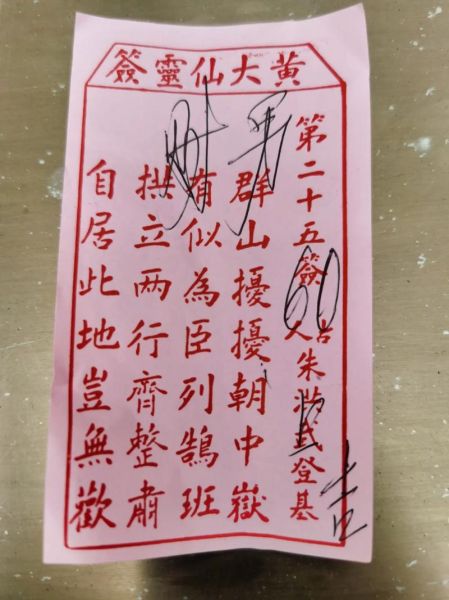 黃大仙靈簽
第二十五簽
60
古人朱洪武登基
吉
群山擾擾朝中嶽
有似為臣列鵠班
拱立两行齊整肅
自居此地豈無歡